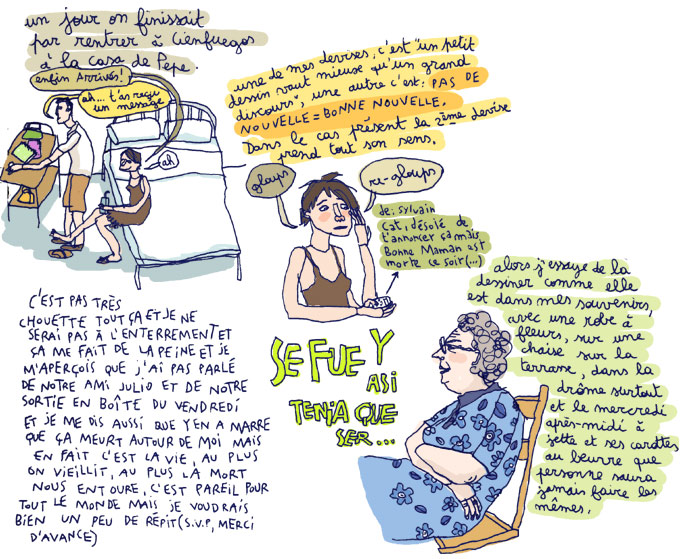 un jour on finissait
par rentrer à Cienfuegos
à la casa de Pepe.
enfin Arrivés!
ah... t'as reçu
un message
ah
une de mes devises, c'est "un petit
dessin vaut mieuse qu'un grand
discours", une autre c'est: PAS DE
NOUVELLE = BONNE NOUVELLE.
Dans le cas présent la 2ème devise
prend tout son sens.
gloups
re-gloups
de: sylvain
Cat, désolé de
t'annoncer ça mais
Bonne Maman est
morte ce soir (...)
C'EST PAS TRÈS
CHOUETTE TOUT ÇA ET JE NE
SERAI PAS À L'ENTERREMENT ET
ÇA ME FAIT DE LA PEINE ET JE
M'APERÇOIS QUE J'AI PAS PARLÉ
DE NOTRE AMI JULIO ET DE NOTRE
SORTIE EN BOÎTE DU VENDREDI
ET JE ME DIS AUSSI QUE Y'EN A MARRE
QUE ÇA MEURT AUTOUR DE MOI MAIS
EN FAIT C'EST LA VIE, AU PLUS
ON VIEILLIT, AU PLUS LA MORT
NOUS ENTOURE, C'EST PAREIL POUR
TOUT LE MONDE MAIS JE VOUDRAIS
BIEN UN PEU DE RÉPIT (S.V.P, MERCI
D'AVANCE)
SE FUE Y
ASI
TENIA QUE
SER...
alors j'essaye de la
dessiner comme elle
est dans mes souvenirs,
avec une robe à
fleurs, sur une
chaise sur la
terrasse, dans la
drôme surtout
et le mercredi
après-midi à
sette et ses carottes
au beurre que
personne saura
jamais faire les
mêmes.